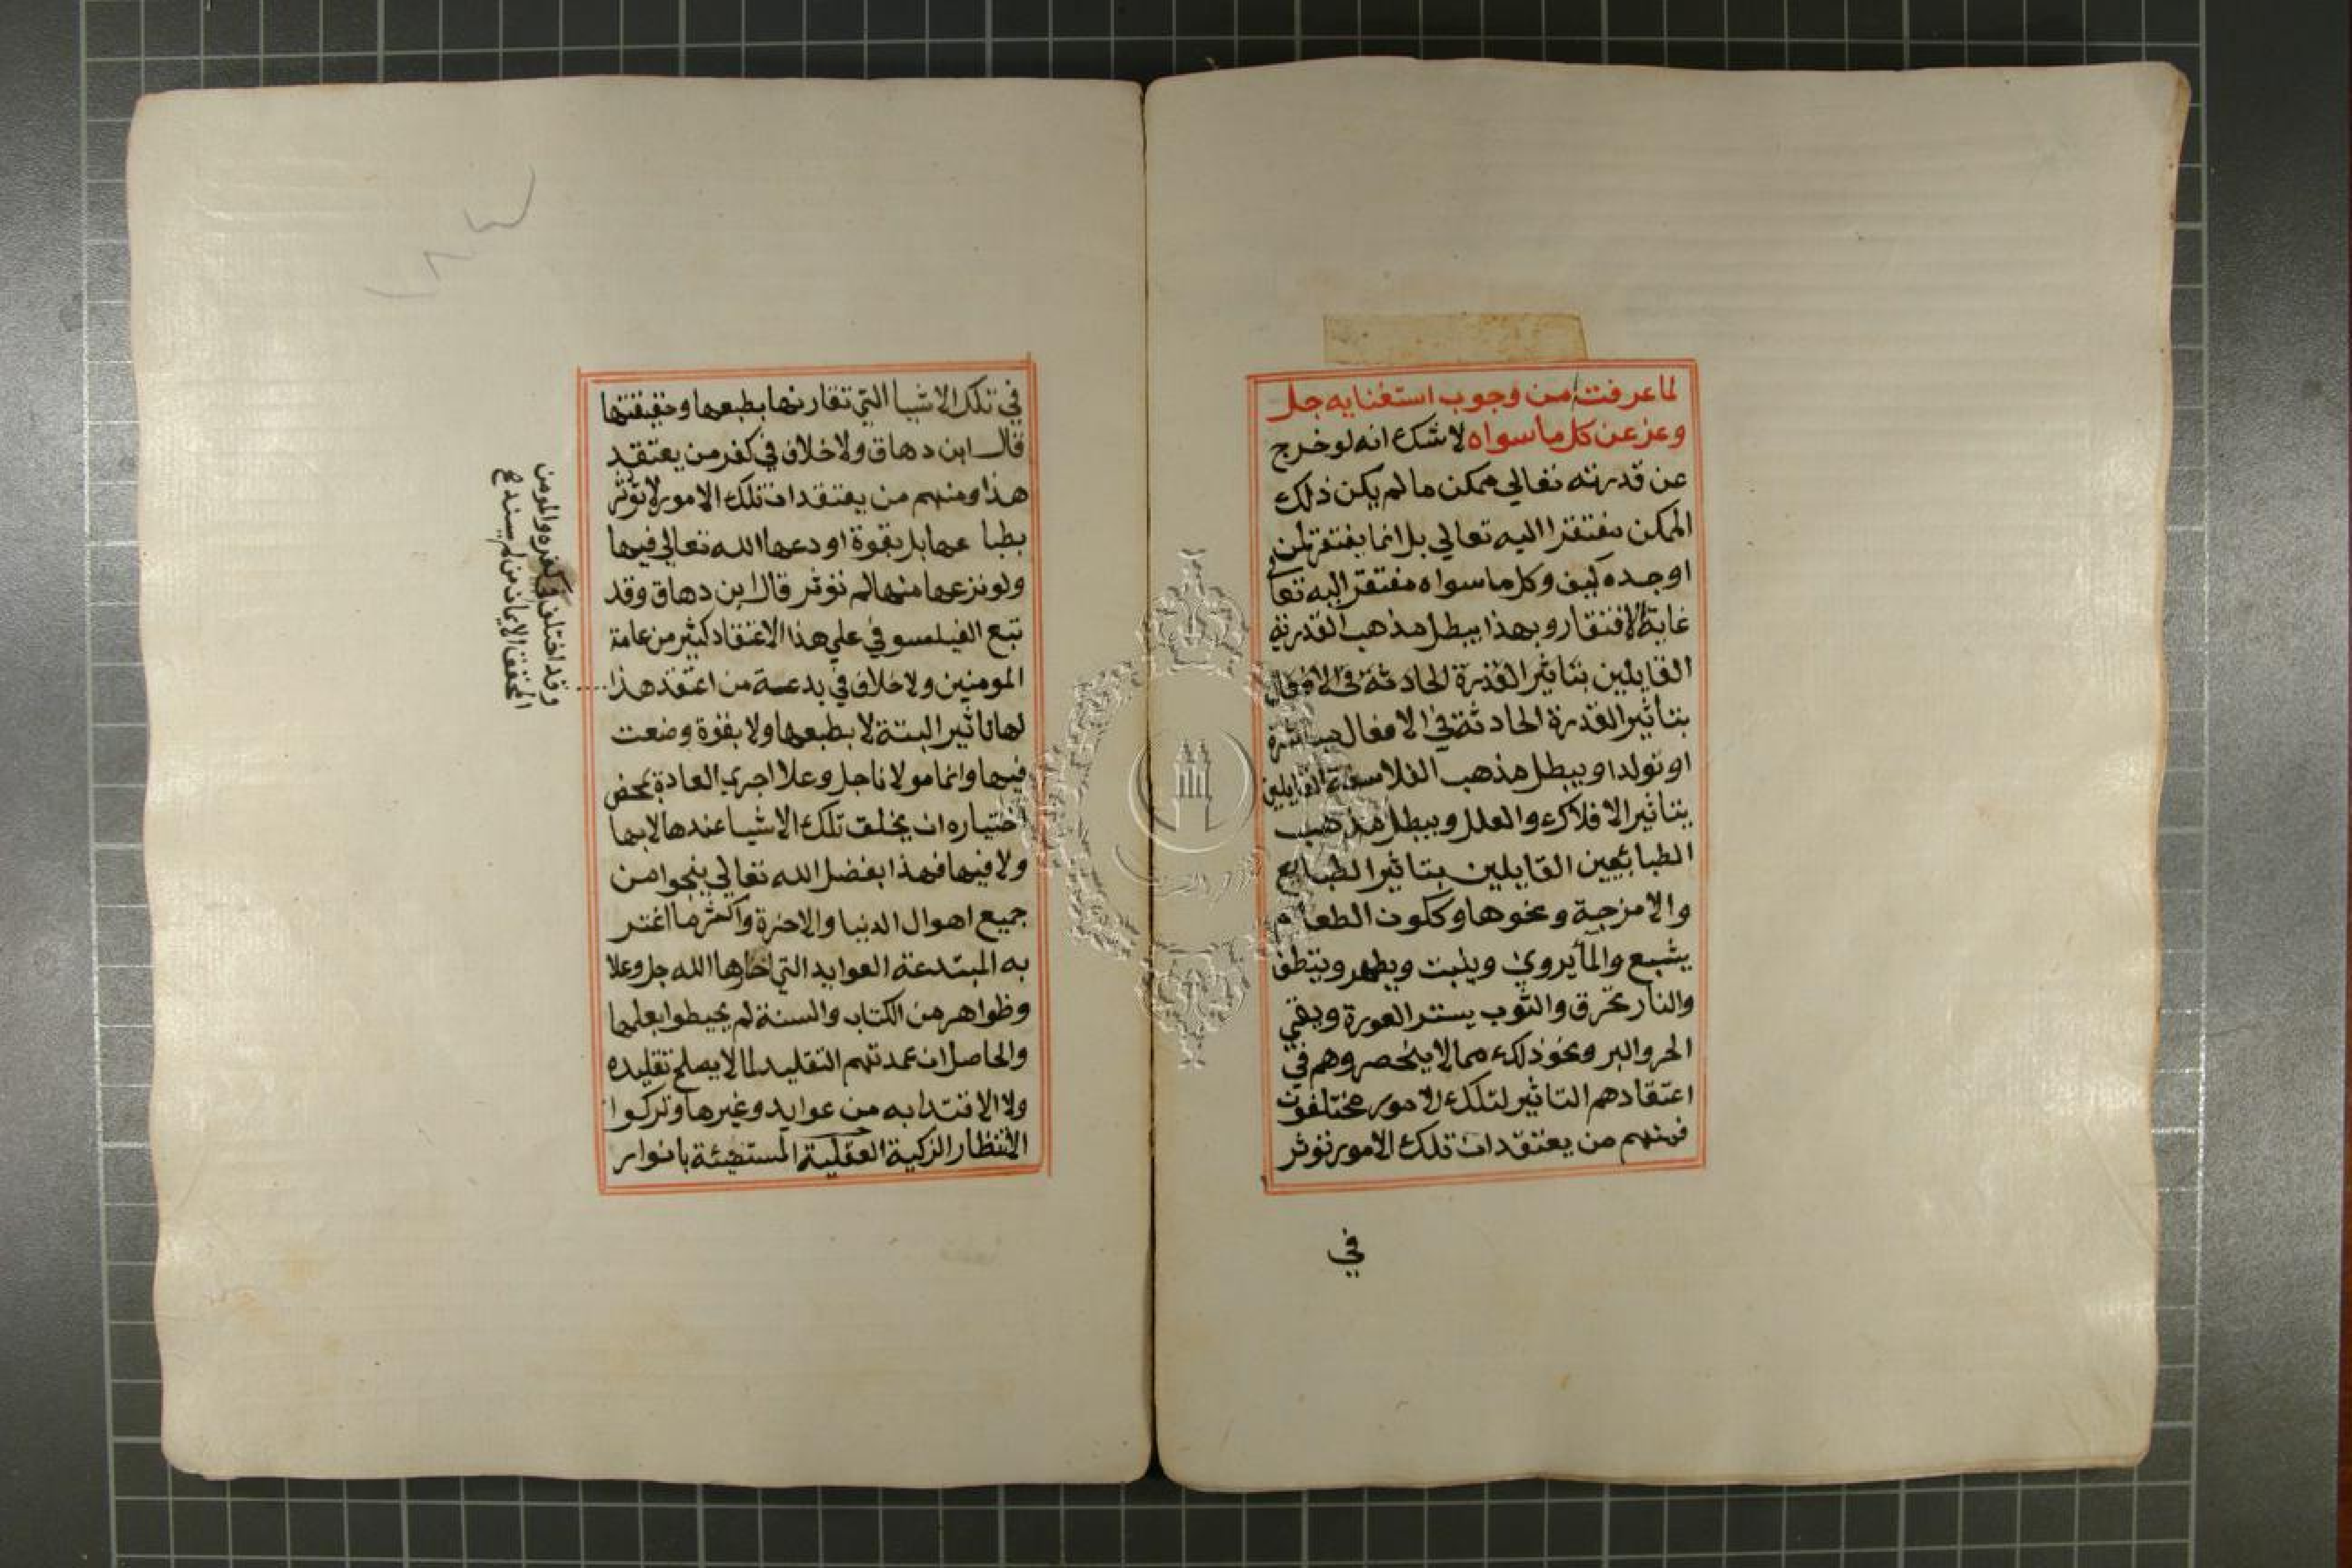 لما عرفت من وجوب استغنايه جل
وعز عن كل ما سواه لا شك انه لو خرج
عن قدرته تعالي ممكن ما لم يكن ذلك
الممكن مفتقرا اليه تعالي بل انما يفتقر لمن
اوجده كيف وكل ما سواه مفتقر اليه تعا
غاية الافتقار وبهذا يبطل مذهب القدرية
القايلين بتاثير القدرة الحادثة في الافعال
بتاثير القدرة الحادثة في الافعال مباشرة
او تولدا ويبطل مذهب الفلاسفة القايلين
بتاثير الافلاك والعلل ويبطل مذهب
الطبائعيين القايلين بتاثير الطبايع
والامزجة ونحوها وككون الطعام
يشبع والمآ يروي وينبت ويطهر وينظف
والنار تحرق والثوب يستر العورة ويقي
الحر والبر ونحو ذلك مما لا ينحصر وهم في
اعتقادهم التاثير لتلك الامور مختلفون
فمنهم من يعتقد ان تلك الامور توثر
في
في تلك الاشيا التي تقارنها بطبعها وحقيقتها
قال ابن دهاق ولا خلاف في كفر من يعتقد
هذا ومنهم من يعتقد ان تلك الامور لا توثر
بطباعها بل بقوة اودعها الله تعالي فيها
ولو نزعها منها لم توثر قال ابن دهاق وقد
تبع الفيلسوفي علي هذا الاعتقاد كثير من عامة
المومنين ولا خلاف في بدعة من اعتقد هذا
لها تاثير البتة لا بطبعها ولا بقوة وضعت
فيها وانما مولانا جل وعلا اجري العادة بمحض
اختياره ان يخلق تلك الاشيا عندها لا بها
ولا فيها فهذا بفضل الله تعالي ينجوا من
جميع اهوال الدنيا والاخرة واكثر ما اغتر
به المبتدعة العوايد التي اجراها الله جل وعلا
وظواهر من الكتاب والسنة لم يحيطوا بعلمها
والحاصل ان عمدتهم التقليد لما لا يصلح تقليده
ولا الاقتدا به من عوايد وغيرها وتركوا
الانتظار الزكية العقلية المستضيئة بانوار
وقد اختلف في كفره والمومن
المحقق الايمان من لم يسند ع
١٨٣